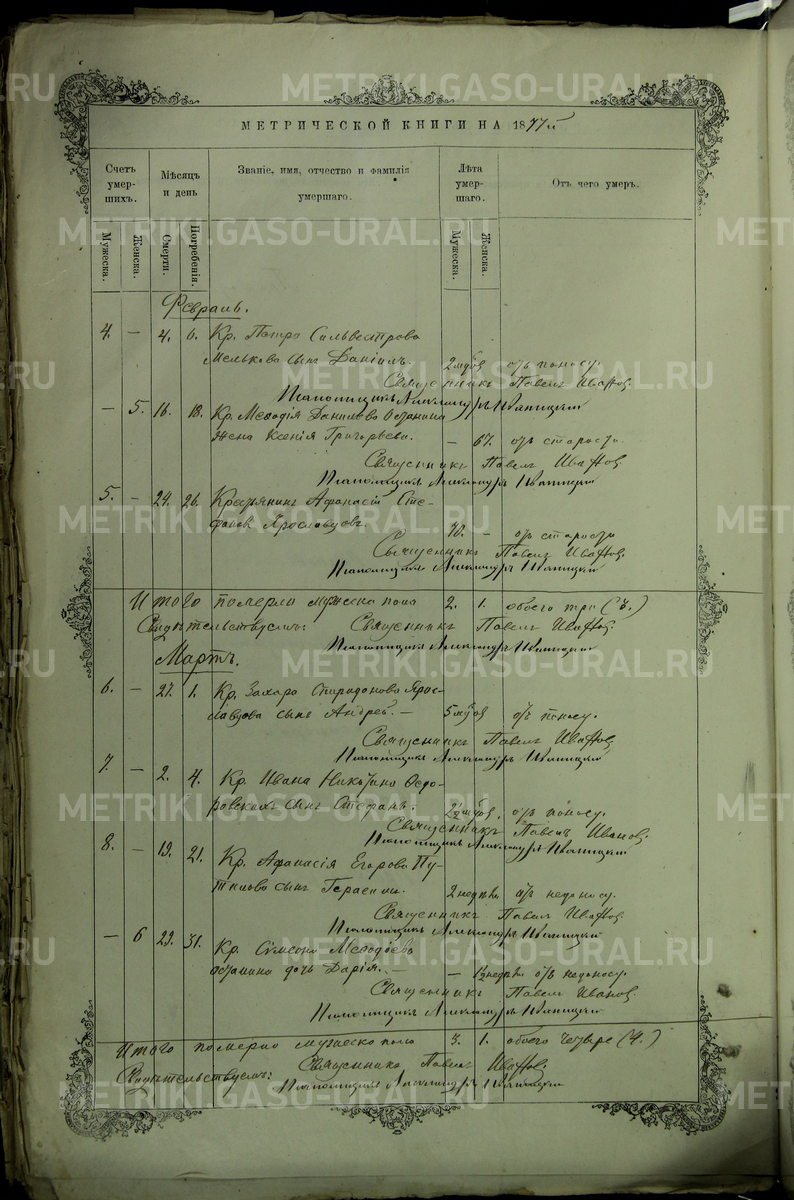 METRIKI.GASO-URAL.RU
МЕТРИЧЕСКОЙ КНИГИ НА 1877й
Счетъ умершихъ.
Мѣсяцъ и день
Званіе, имя, отчество и фамилія умершаго.
Лѣта умершаго.
Отъ чего умеръ.
Мужеска.
Женска.
Смерти.
Погребенія.
Мужеска.
Женска.
Февраль.
4. — 4. 6. Кр. Петра Сильвестрова
Мелькова сынъ Даніилъ. 2 мѣс отъ поносу.
Священникъ Павелъ Ивановъ
Псаломщикъ Александръ
— 5. 16. 18. Кр. Меѳодія Данилова Останина
жена Ксенія Григорьева. — 67. отъ старости.
Священникъ Павелъ Ивановъ
Псаломщикъ Александръ
5. — 24. 26. Крестьянинъ Аѳанасій Сте-
фановъ Ярославцовъ. 70. — отъ старости
Священникъ Павелъ Ивановъ.
Псаломщикъ Александръ
Итого померло мужеска пола 2. 1. обоего три (3.)
Свидѣтельствуемъ: Священникъ Павелъ Ивановъ.
Псаломщикъ Александръ
Мартъ.
6. — 27. 1. Кр. Захара Спиридонова Ярос-
лавцова сынъ Андрей. — 5 мѣс отъ поносу.
Священникъ Павелъ Ивановъ
Псаломщикъ Александръ
7. — 2. 4. Кр. Ивана Никитина Ѳедо-
ровскихъ сынъ Стефанъ. 2½ мѣс. отъ поносу.
Священникъ Павелъ Ивановъ.
Псаломщикъ Александръ
8. — 19. 21. Кр. Аѳанасія Егорова Пу-
тилова сынъ Герасимъ. 2 недѣли отъ недоносу.
Священникъ Павелъ Ивановъ.
Псаломщикъ Александръ
— 6 29. 31. Кр. Сѵмеона Меѳодіева
Останина дочь Дарія. — 1½ недѣли отъ недоносу.
Священникъ Павелъ Ивановъ.
Псаломщикъ Александръ
Итого померло мужеска пола 3. 1. обоего четыре (4.)
Свидѣтельствуемъ: Священникъ Павелъ Ивановъ
Псаломщикъ Александръ